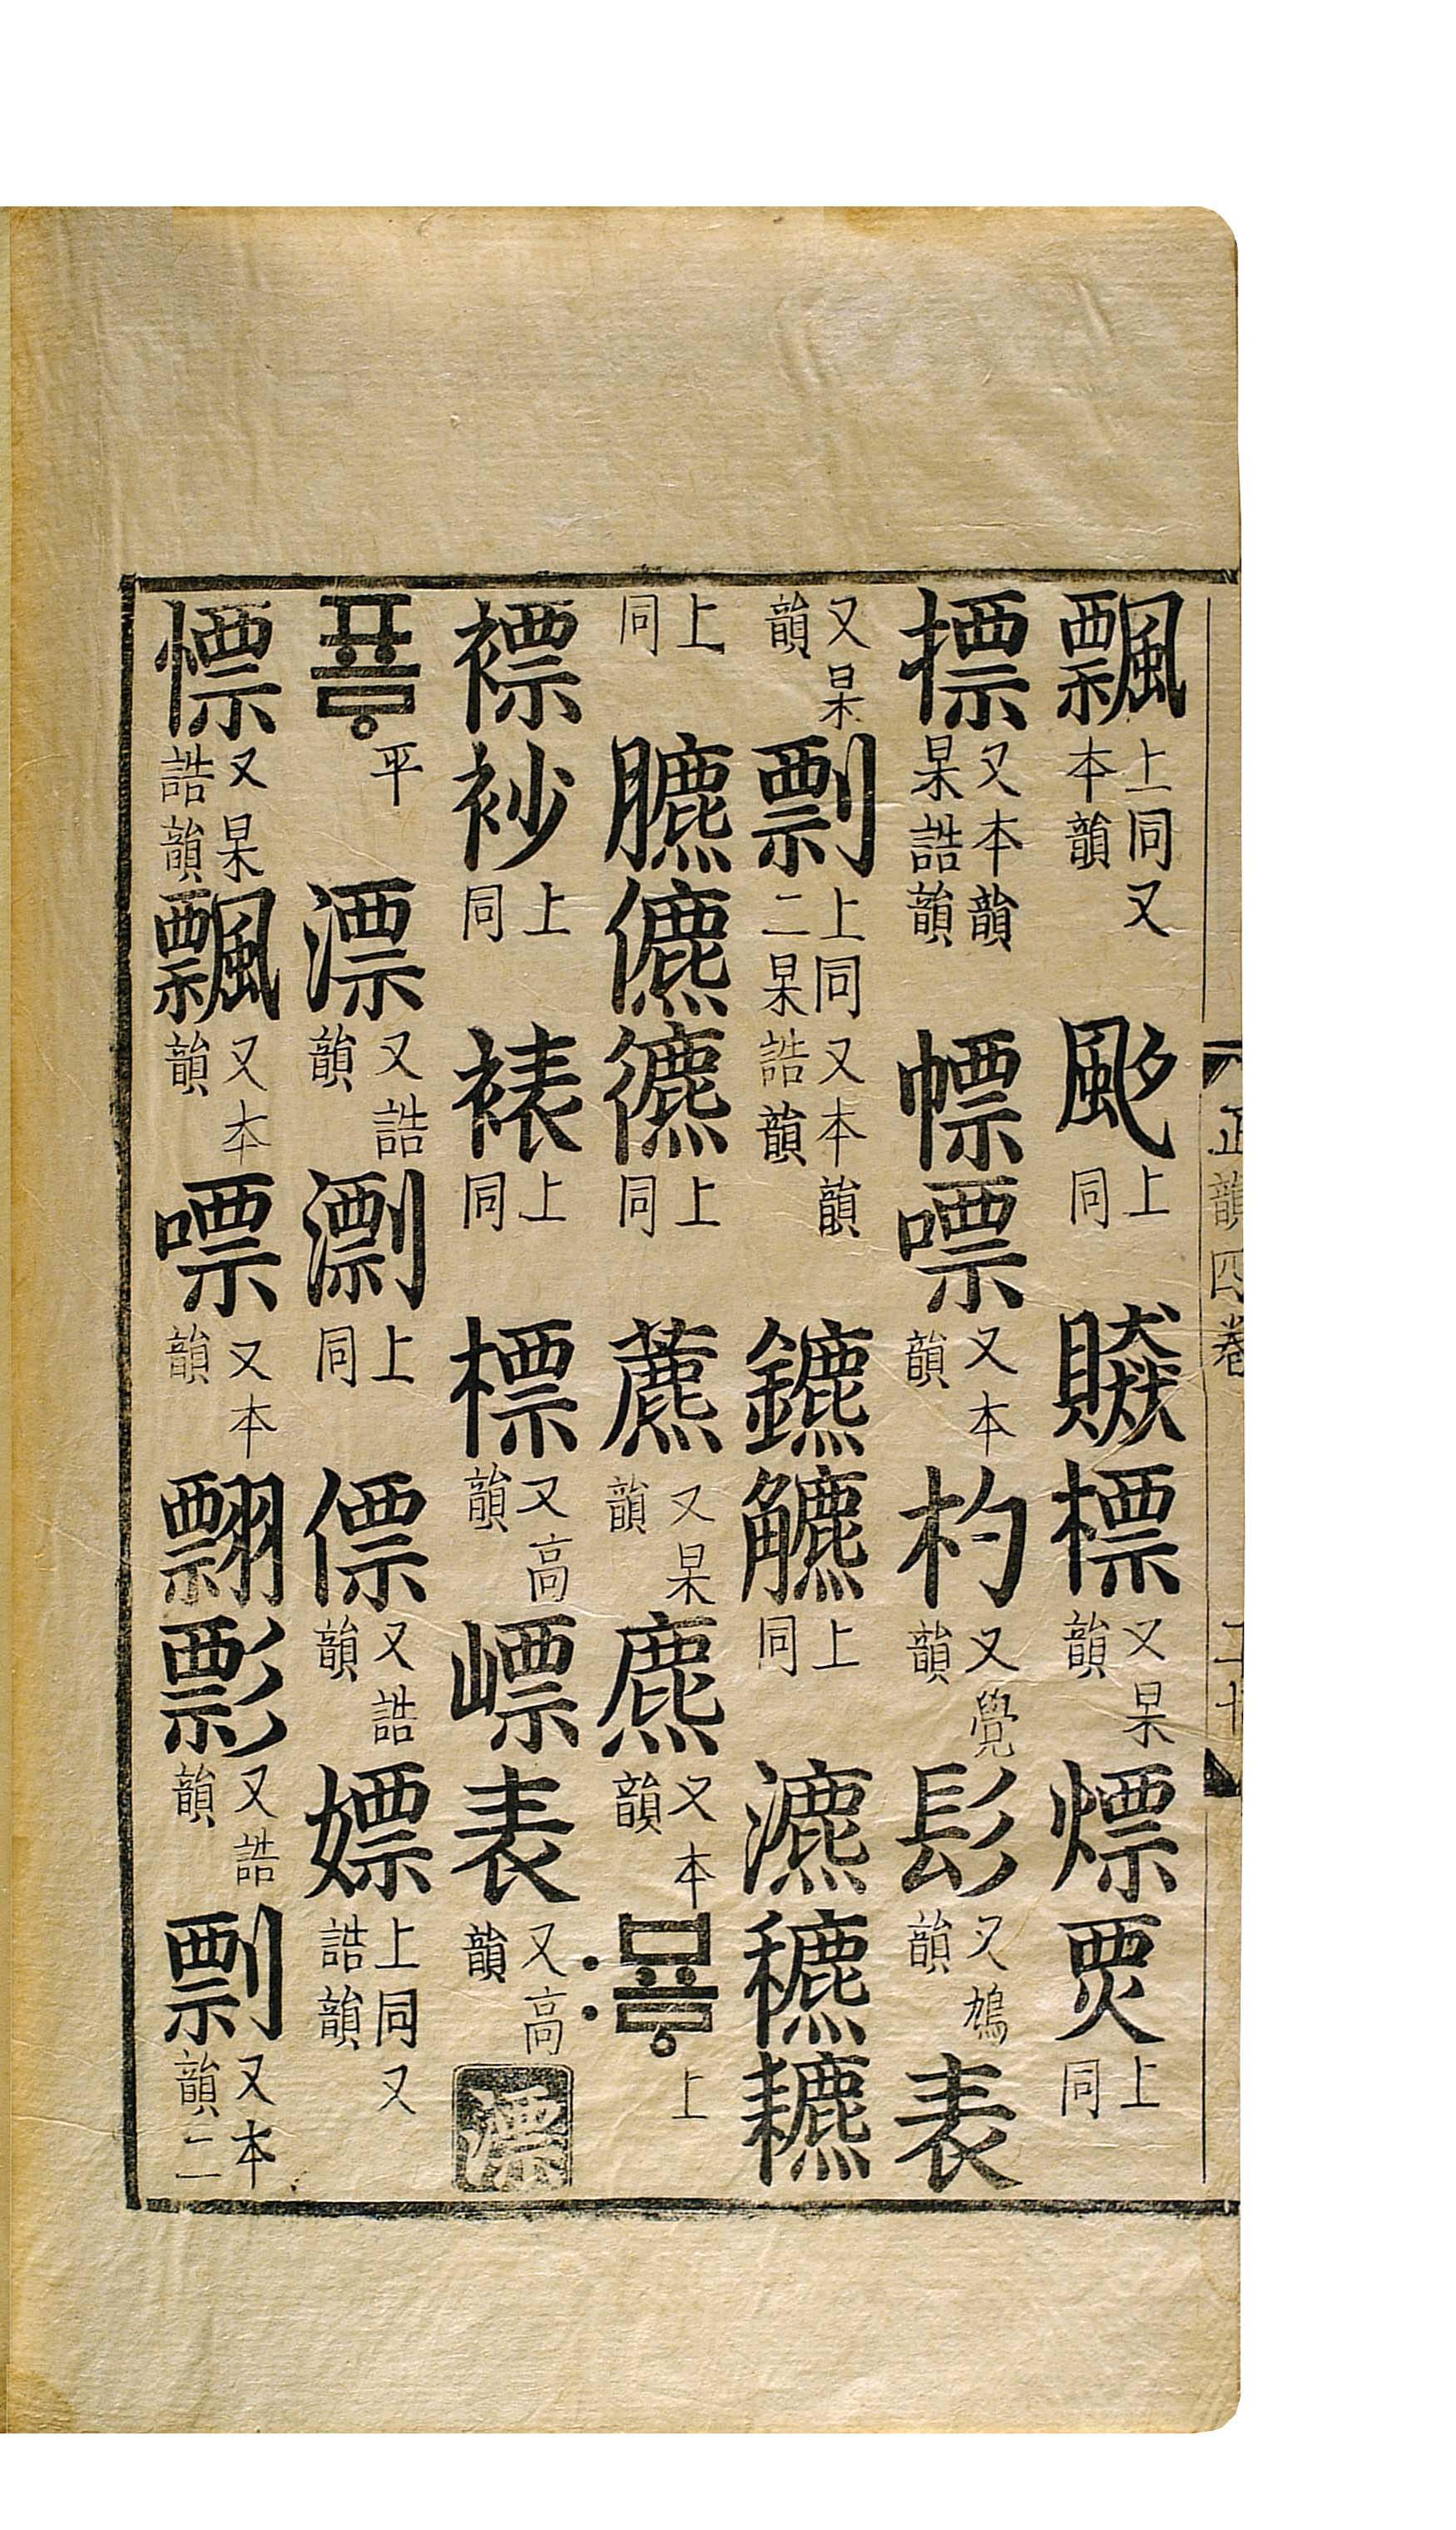 飄上同又本韻颩上同贆標又杲韻熛㶾上同
摽又本韻杲誥韻幖嘌又本韻杓又覺韻髟又鳩韻表
又杲韻剽上同又本韻二杲誥韻鑣上同瀌穮
上同臕儦上同藨又杲韻麃又本韻〯뵤ᇢ上
褾上同裱上同標又高韻㠒表又高韻漂
표ᇢ平漂又誥韻上同僄又誥韻嫖上同又誥韻
慓又杲誥韻飄又本韻嘌又本韻翲彯又誥韻剽又本韻二
正韻四卷